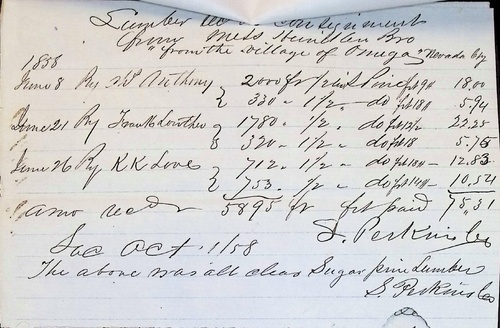 Lumber rec on consignment
from Mess Bro
"from the village of Omega" Nevada City
1858
June 8 By Wm Anthony 2000 ft 1 pine frt 90 18.00
330 " 1/2 " do frt 18 5.94
June 21 By Frank Lowther 1780 " 1/2 " do frt 12/2 22.25
320 " 1/2 " do frt 18 5.76
June 26 By K K Love 712 " 1/2 " do frt 18 12.83
753 " /2 " do frt 14 10.54
amo recd 5895 ft frt paid 75.31
Sac Oct 1/58 S. Perkins &Co
The above was all clear Sugar pine Lumber
S. Perkins &Co